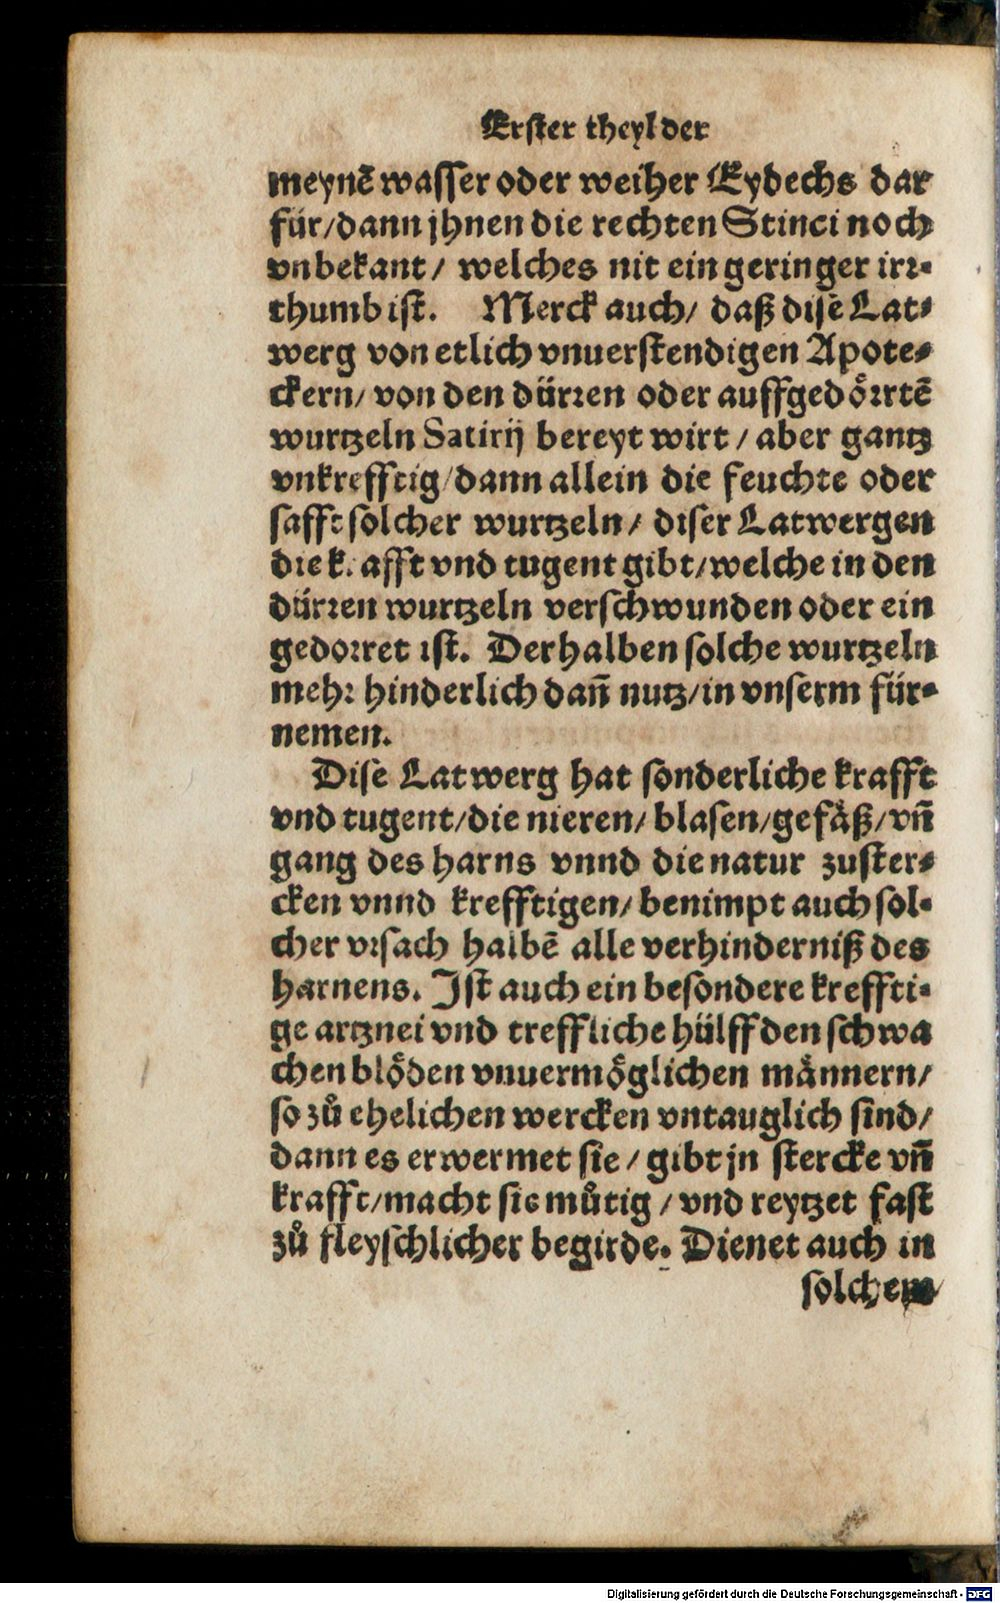 Erster theyl der
meynē wasser oder weiher Eydechs dar
für/dann jhnen die rechten Stinci noch
vnbekant/ welches nit ein geringer irꝛ⸗
thumb ist. Merck auch/ daß dise Lat⸗
werg von etlich vnuerstendigen Apote⸗
ckern/ von den dürꝛen oder auffgedoͤꝛrtē
wurtzeln Satirij bereyt wirt / aber gantz
vnkrefftig/dann allein die feuchte oder
safft solcher wurtzeln/ diser Latwergen
die krafft vnd tugent gibt/welche in den
dürꝛen wurtzeln verschwunden oder ein
gedoꝛret ist. Derhalben solche wurtzeln
mehꝛ hinderlich dañ nutz/in vnserm für⸗
nemen.
Dise Latwerg hat sonderliche krafft
vnd tugent/die nieren/ blasen/gefaͤß/vñ
gang des harns vnnd die natur zuster⸗
cken vnnd krefftigen/ benimpt auch sol⸗
cher vꝛsach halbē alle verhinderniß des
harnens. Ist auch ein besondere kreffti⸗
ge artznei vnd treffliche hülff den schwa
chen bloͤden vnuermoͤglichen maͤnnern/
so zů ehelichen wercken vntauglich sind/
dann es erwermet sie / gibt jn stercke vñ
krafft/macht sie můtig / vnd reytzet fast
zů fleyschlicher begirde. Dienet auch in
solchem
Digitalisierung gefördert durch die Deutsche Forschungsgemeinschaft - DFG